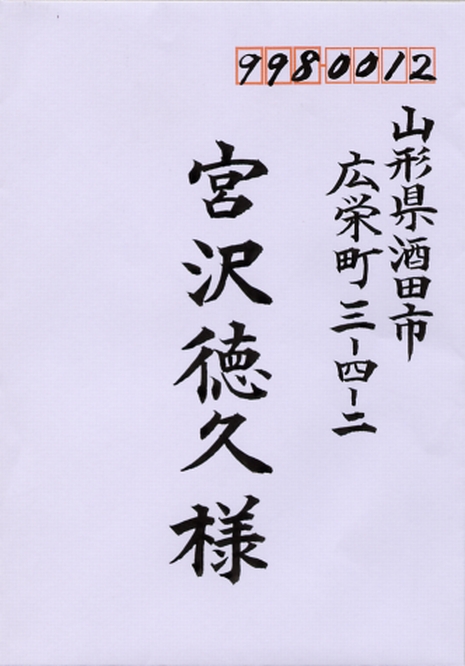 9980012
山形県酒田市
広栄町三-四-二
宮沢徳久様